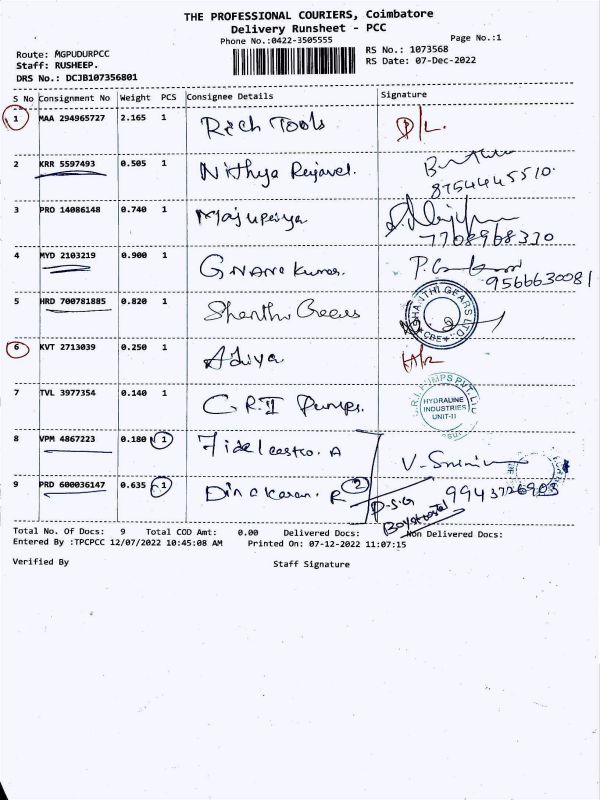 THE PROFESSIONAL COURIERS, Coimbatore
Delivery Runsheet - PCC
Phone No.:0422-3505555
Page No.:1
Route: MGPUDURPCC
RS No.: 1073568
Staff: RUSHEEP.
RS Date: 07-Dec-2022
DRS No.: DCJB107356801
S No Consignment No Weight PCS Consignee Details Signature
1 MAA 294965727 2.165 1 Rich Tools D/L.
2 KRR 5597493 0.505 1 Nithya
8754445510.
3 PRO 14086148 0.740 1
7708968330
4 MYD 2103219 0.900 1 GNANA Kumar.
9566630081
5 HRD 700781885 0.820 1 Shanthi Gears SHANTHI GEARS LTD CBE
6 KVT 2713039 0.250 1 Adiya
7 TVL 3977354 0.140 1 C.R.I Pumps. C.R.I. PUMPS PVT. LTD
HYDRAULINE
INDUSTRIES
UNIT-II
8 VPM 4867223 0.180 1 A V-
9 PRD 600036147 0.635 1 Dinakaran. R 2
P.S.G 9943726903
Total No. Of Docs: 9 Total COD Amt: 0.00 Delivered Docs: Non Delivered Docs:
Entered By :TPCPCC 12/07/2022 10:45:08 AM Printed On: 07-12-2022 11:07:15
Verified By Staff Signature